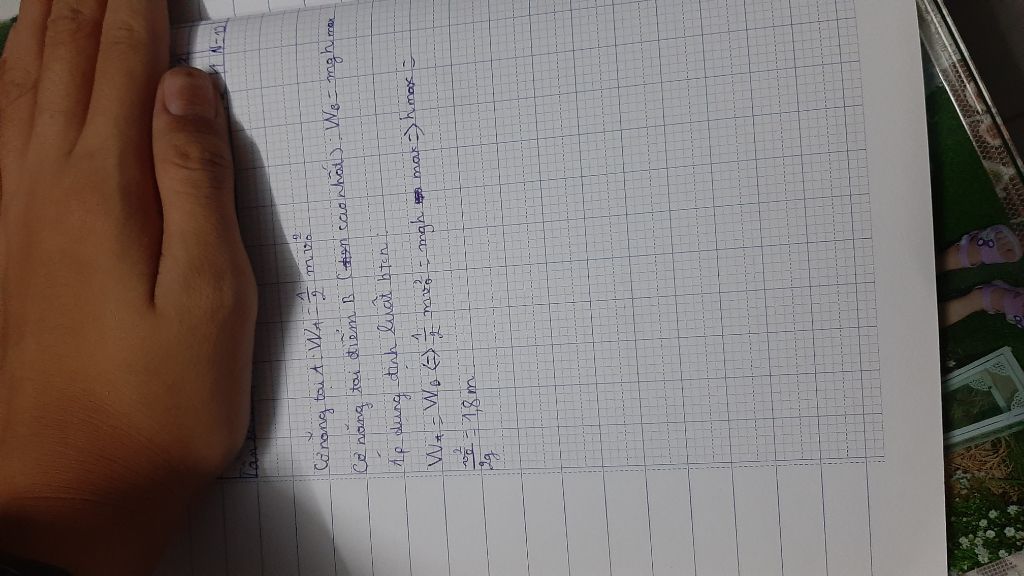 Cơ năng tại A: W_A = 1/2 mv₀²
Cơ năng tại điểm B ( cao nhất) W_B = mgh max
Áp dụng định luật btcn
W_A = W_B (=) 1/2 mv₀² = mgh max => h max =
v₀²/2g = 1,8 m